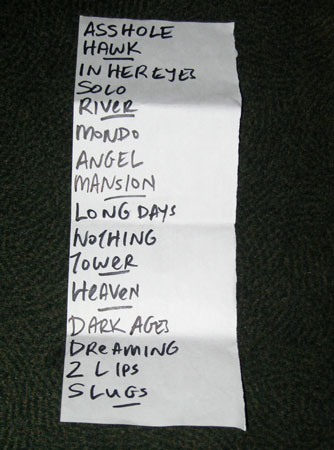 ASSHOLE
HAWK
IN HER EYES
SOLO
RIVER
MONDO
ANGEL
MANSION
LONG DAYS
NOTHING
TOWER
HEAVEN
DARK AGES
DREAMING
2 LIPS
SLUGS